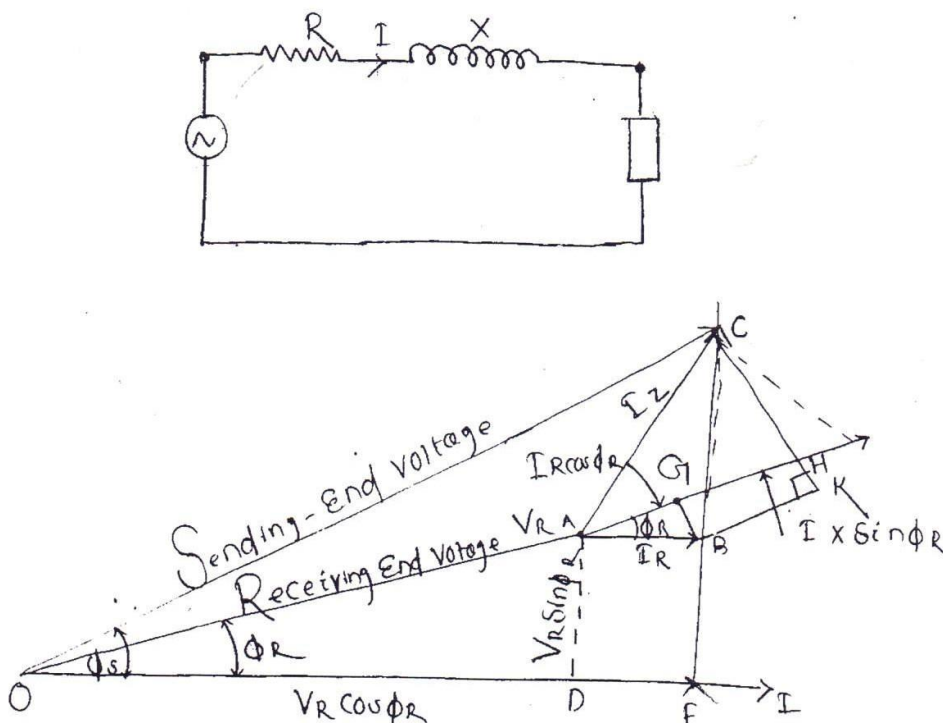 R
I
X
C
Sending-End Voltage
IZ
IRcosφR
G
H
K
VR A
φR
IR
B
I X SinφR
Receiving End Votage
VRSinφR
φs
φR
O
VR COSφR
D
F
I